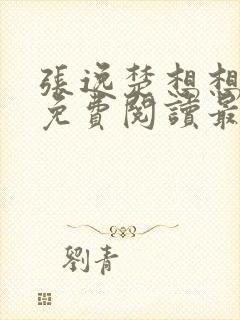 張逸楚想想
免費閱讀最
劉青